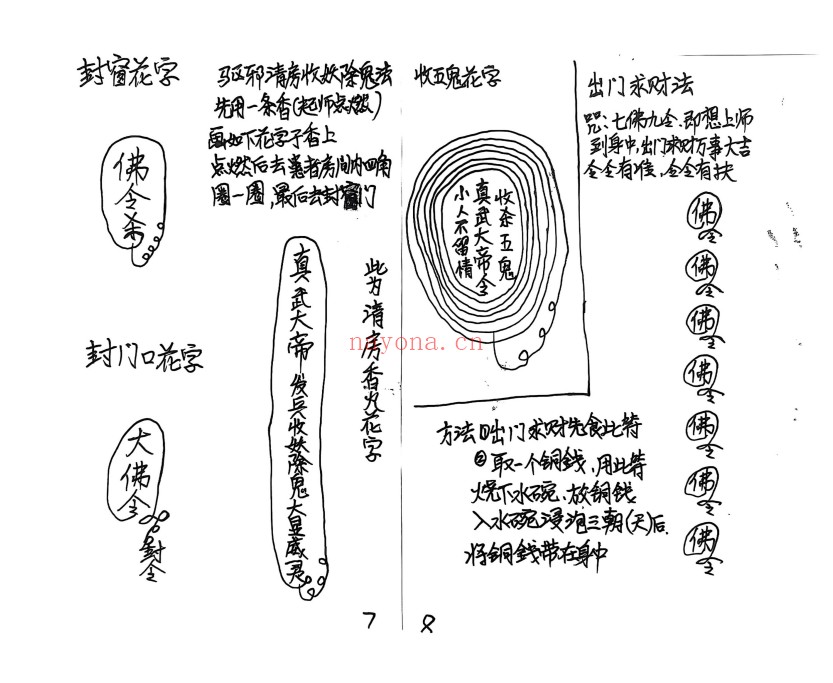 封窗花字
佛令杀
封门口花字
大佛令
封令
驱邪清房收妖除鬼法
先用一条香(起师点燃)
画如下花字于香上
点燃后去患者房间内四角
圈一圈,最后去封窗门
真武大帝发兵收妖除鬼大显威灵
此为清房香火花字
7
收五鬼花字
收杀五鬼
真武大帝令
小人不留情
出门求财法
咒:七佛九令.即想上师
到身中,出门求财万事大吉
令令有准,令令有扶
佛令
佛令
佛令
佛令
佛令
佛令
佛令
方法①出门求财先食此符
②取一个铜錢,用此符
烧下水碗.放铜钱
入水碗浸泡三朝(天)后.
将铜錢带在身中
8
nayona.cn